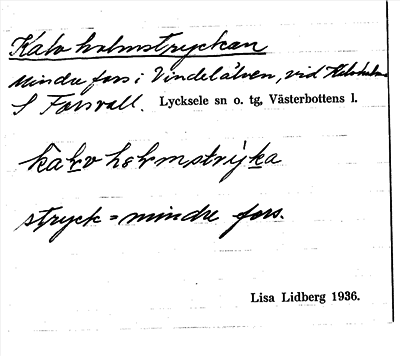 Kalvholmstryckan
Mindre fors i Vindelälven, vid Kalvholmen
S Forsvall. Lycksele sn o. tg, Västerbottens l.
stryck = mindre fors.
Lisa Lidberg 1936.